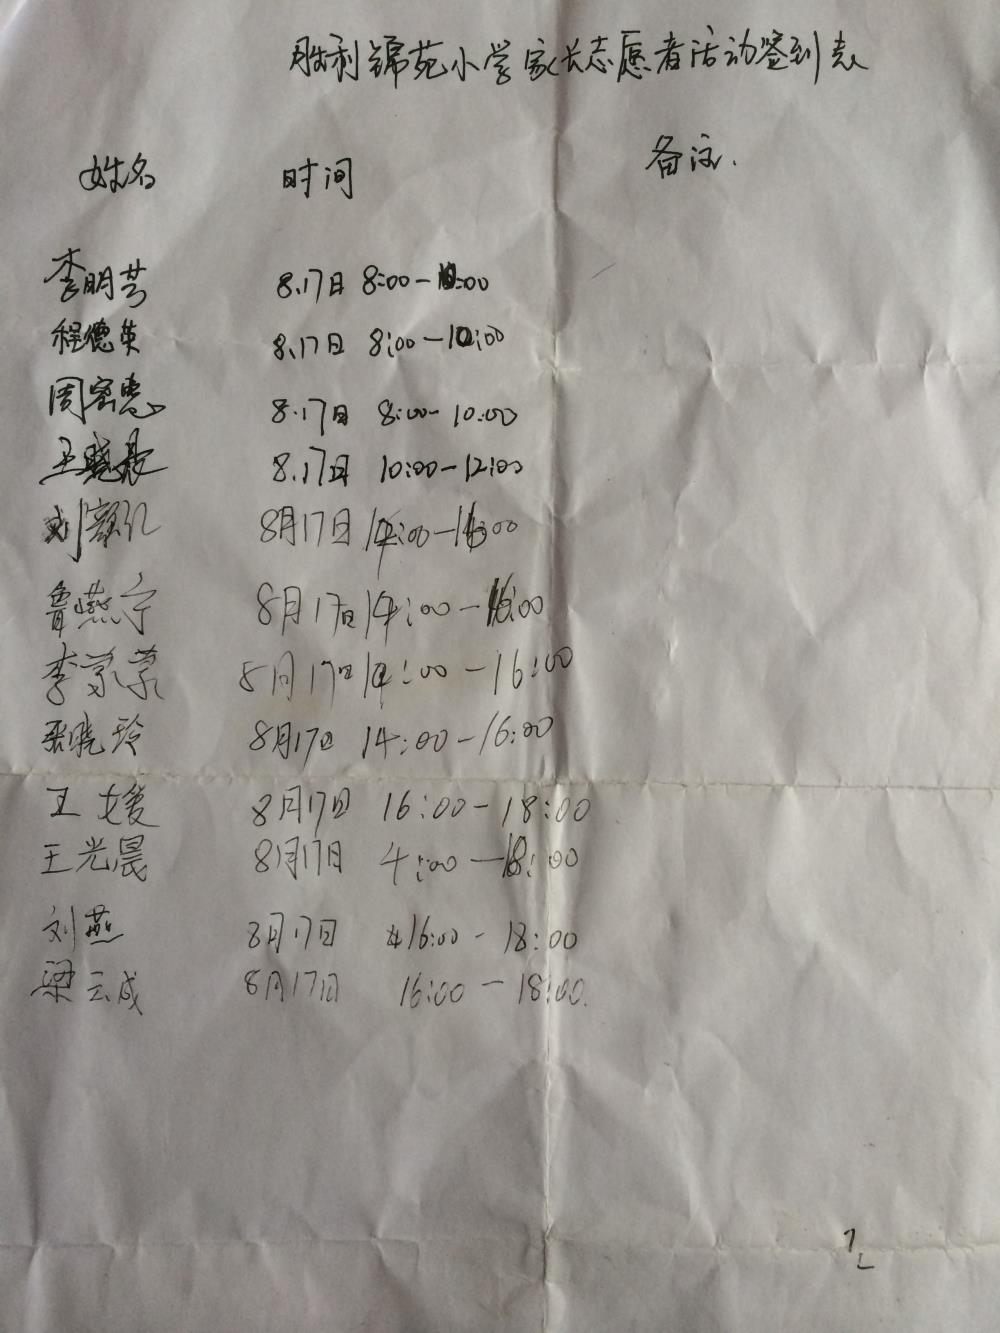 胜利锦苑小学家长志愿者活动签到表
姓名 时间 备注.
李明芳 8.17日 8:00-10:00
程德英 8.17日 8:00-10:00
周密惠 8.17日 8:00-10:00
王晓 8.17日 10:00-12:00
刘 8月17日 14:00-16:00
鲁燕宁 8月17日 14:00-16:00
李蒙蒙 8月17日 14:00-16:00
张晓玲 8月17日 14:00-16:00
王媛 8月17日 16:00-18:00
王光晨 8月17日 4:00-18:00
刘燕 8月17日 16:00-18:00
梁云成 8月17日 16:00-18:00.